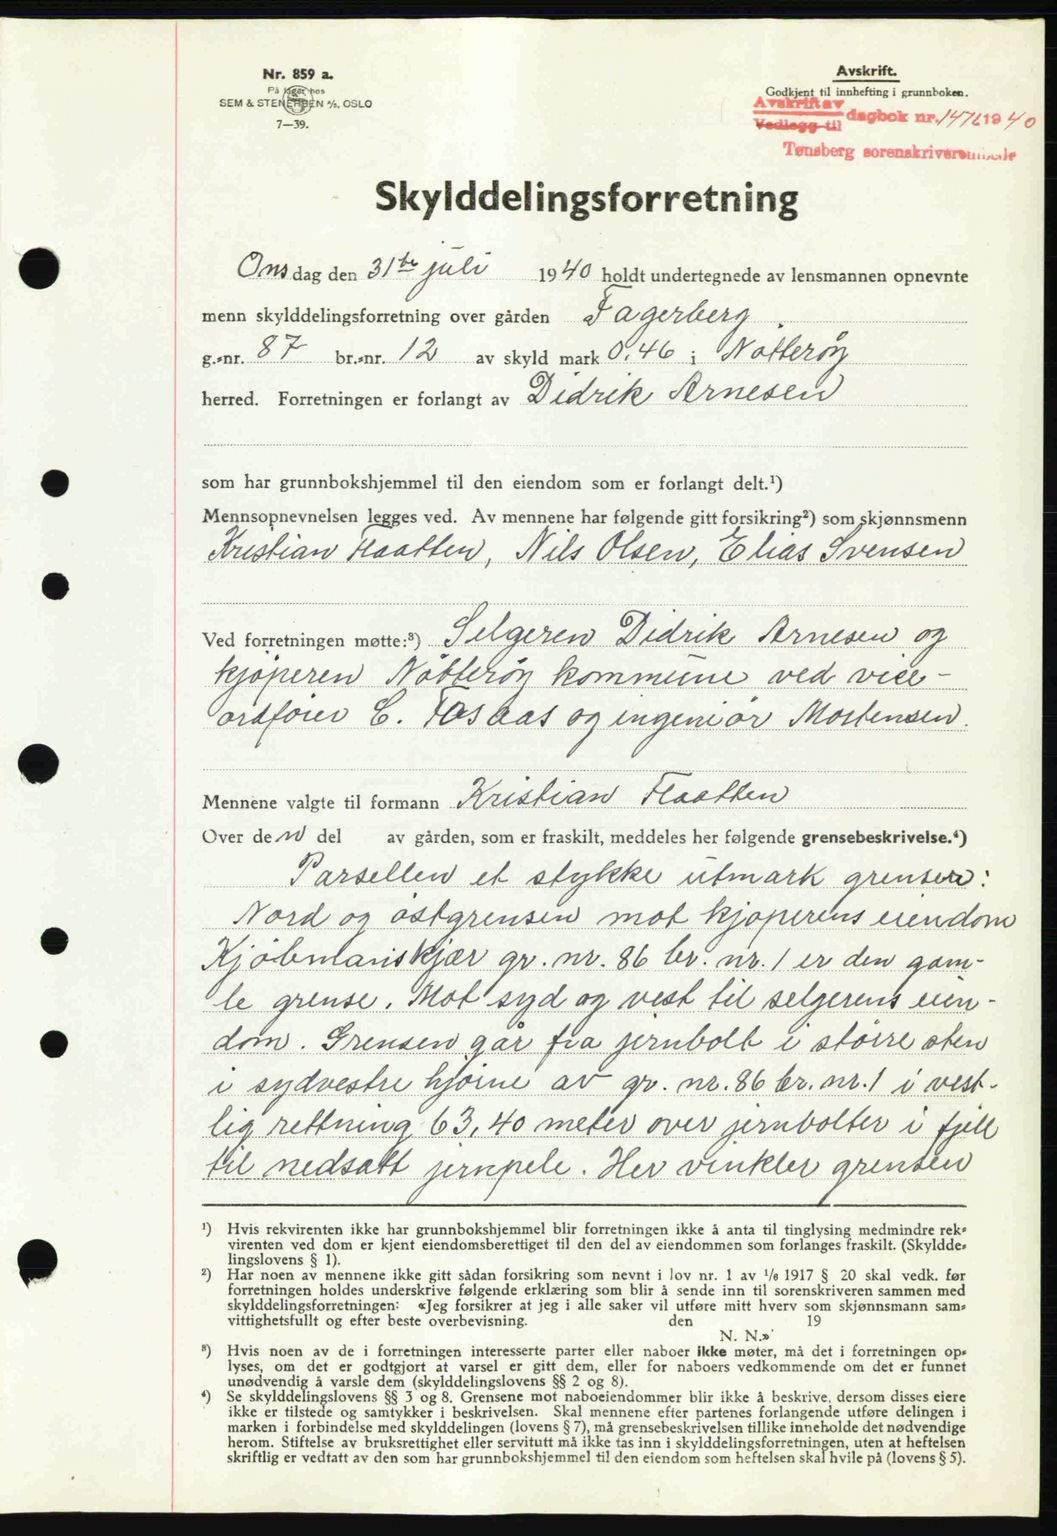 Nr. 859 a.
På lager hos
SEM & STENERSEN A/S, OSLO
7—39.
Avskrift.
Godkjent til innhefting i grunnboken.
Avskrift av
Vedlegg til
dagbok nr. 1476 1940
Tønsberg sorenskriverembede
Skylddelingsforretning
Onsdag den 31te juli 1940 holdt undertegnede av lensmannen opnevnte
menn skylddelingsforretning over gården Fagerberg
g.-nr. 87 br.-nr. 12 av skyld mark 0,46 i Nøtterøy
herred. Forretningen er forlangt av Didrik Arnesen
som har grunnbokshjemmel til den eiendom som er forlangt delt.¹)
Mennsopnevnelsen legges ved. Av mennene har følgende gitt forsikring²) som skjønnsmenn
Kristian Flaatten, Nils Olsen, Elias Svensen
Ved forretningen møtte:³) Selgeren Didrik Arnesen og
kjøperen Nøtterøy kommune ved vice-
ordfører C. Fosaas og ingeniør Mortensen.
Mennene valgte til formann Kristian Flaatten
Over den del av gården, som er fraskilt, meddeles her følgende grensebeskrivelse.⁴)
Parsellen et stykke utmark grenser:
Nord og østgrensen mot kjøperens eiendom
Kjøbmanskjær gr. nr. 86 br. nr. 1 er den gam-
le grense. Mot syd og vest til selgerens eien-
dom. Grensen går fra jernbolt i større sten
i sydvestre hjørne av gr. nr. 86 br. nr. 1 i vest-
lig rettning 63,40 meter over jernbolter i fjell
til nedsatt jernpele. Her vinkler grensen
¹) Hvis rekvirenten ikke har grunnbokshjemmel blir forretningen ikke å anta til tinglysing medmindre rek-
virenten ved dom er kjent eiendomsberettiget til den del av eiendommen som forlanges fraskilt. (Skyldde-
lingslovens § 1).
²) Har noen av mennene ikke gitt sådan forsikring som nevnt i lov nr. 1 av 1/8 1917 § 20 skal vedk. før
forretningen holdes underskrive følgende erklæring som blir å sende inn til sorenskriveren sammen med
skylddelingsforretningen: «Jeg forsikrer at jeg i alle saker vil utføre mitt hverv som skjønnsmann sam-
vittighetsfullt og efter beste overbevisning. den 19
N. N.»
³) Hvis noen av de i forretningen interesserte parter eller naboer ikke møter, må det i forretningen op-
lyses, om det er godtgjort at varsel er gitt dem, eller for naboers vedkommende om det er funnet
unødvendig å varsle dem (skylddelingslovens §§ 2 og 8).
⁴) Se skylddelingslovens §§ 3 og 8. Grensene mot naboeiendommer blir ikke å beskrive, dersom disses eiere
ikke er tilstede og samtykker i beskrivelsen. Skal mennene efter partenes forlangende utføre delingen i
marken i forbindelse med skylddelingen (lovens § 7), må grensebeskrivelsen tillike inneholde det nødvendige
herom. Stiftelse av bruksrettighet eller servitutt må ikke tas inn i skylddelingsforretningen, uten at heftelsen
skriftlig er vedtatt av den som har grunnbokshjemmel til den eiendom som heftelsen skal hvile på (lovens § 5).